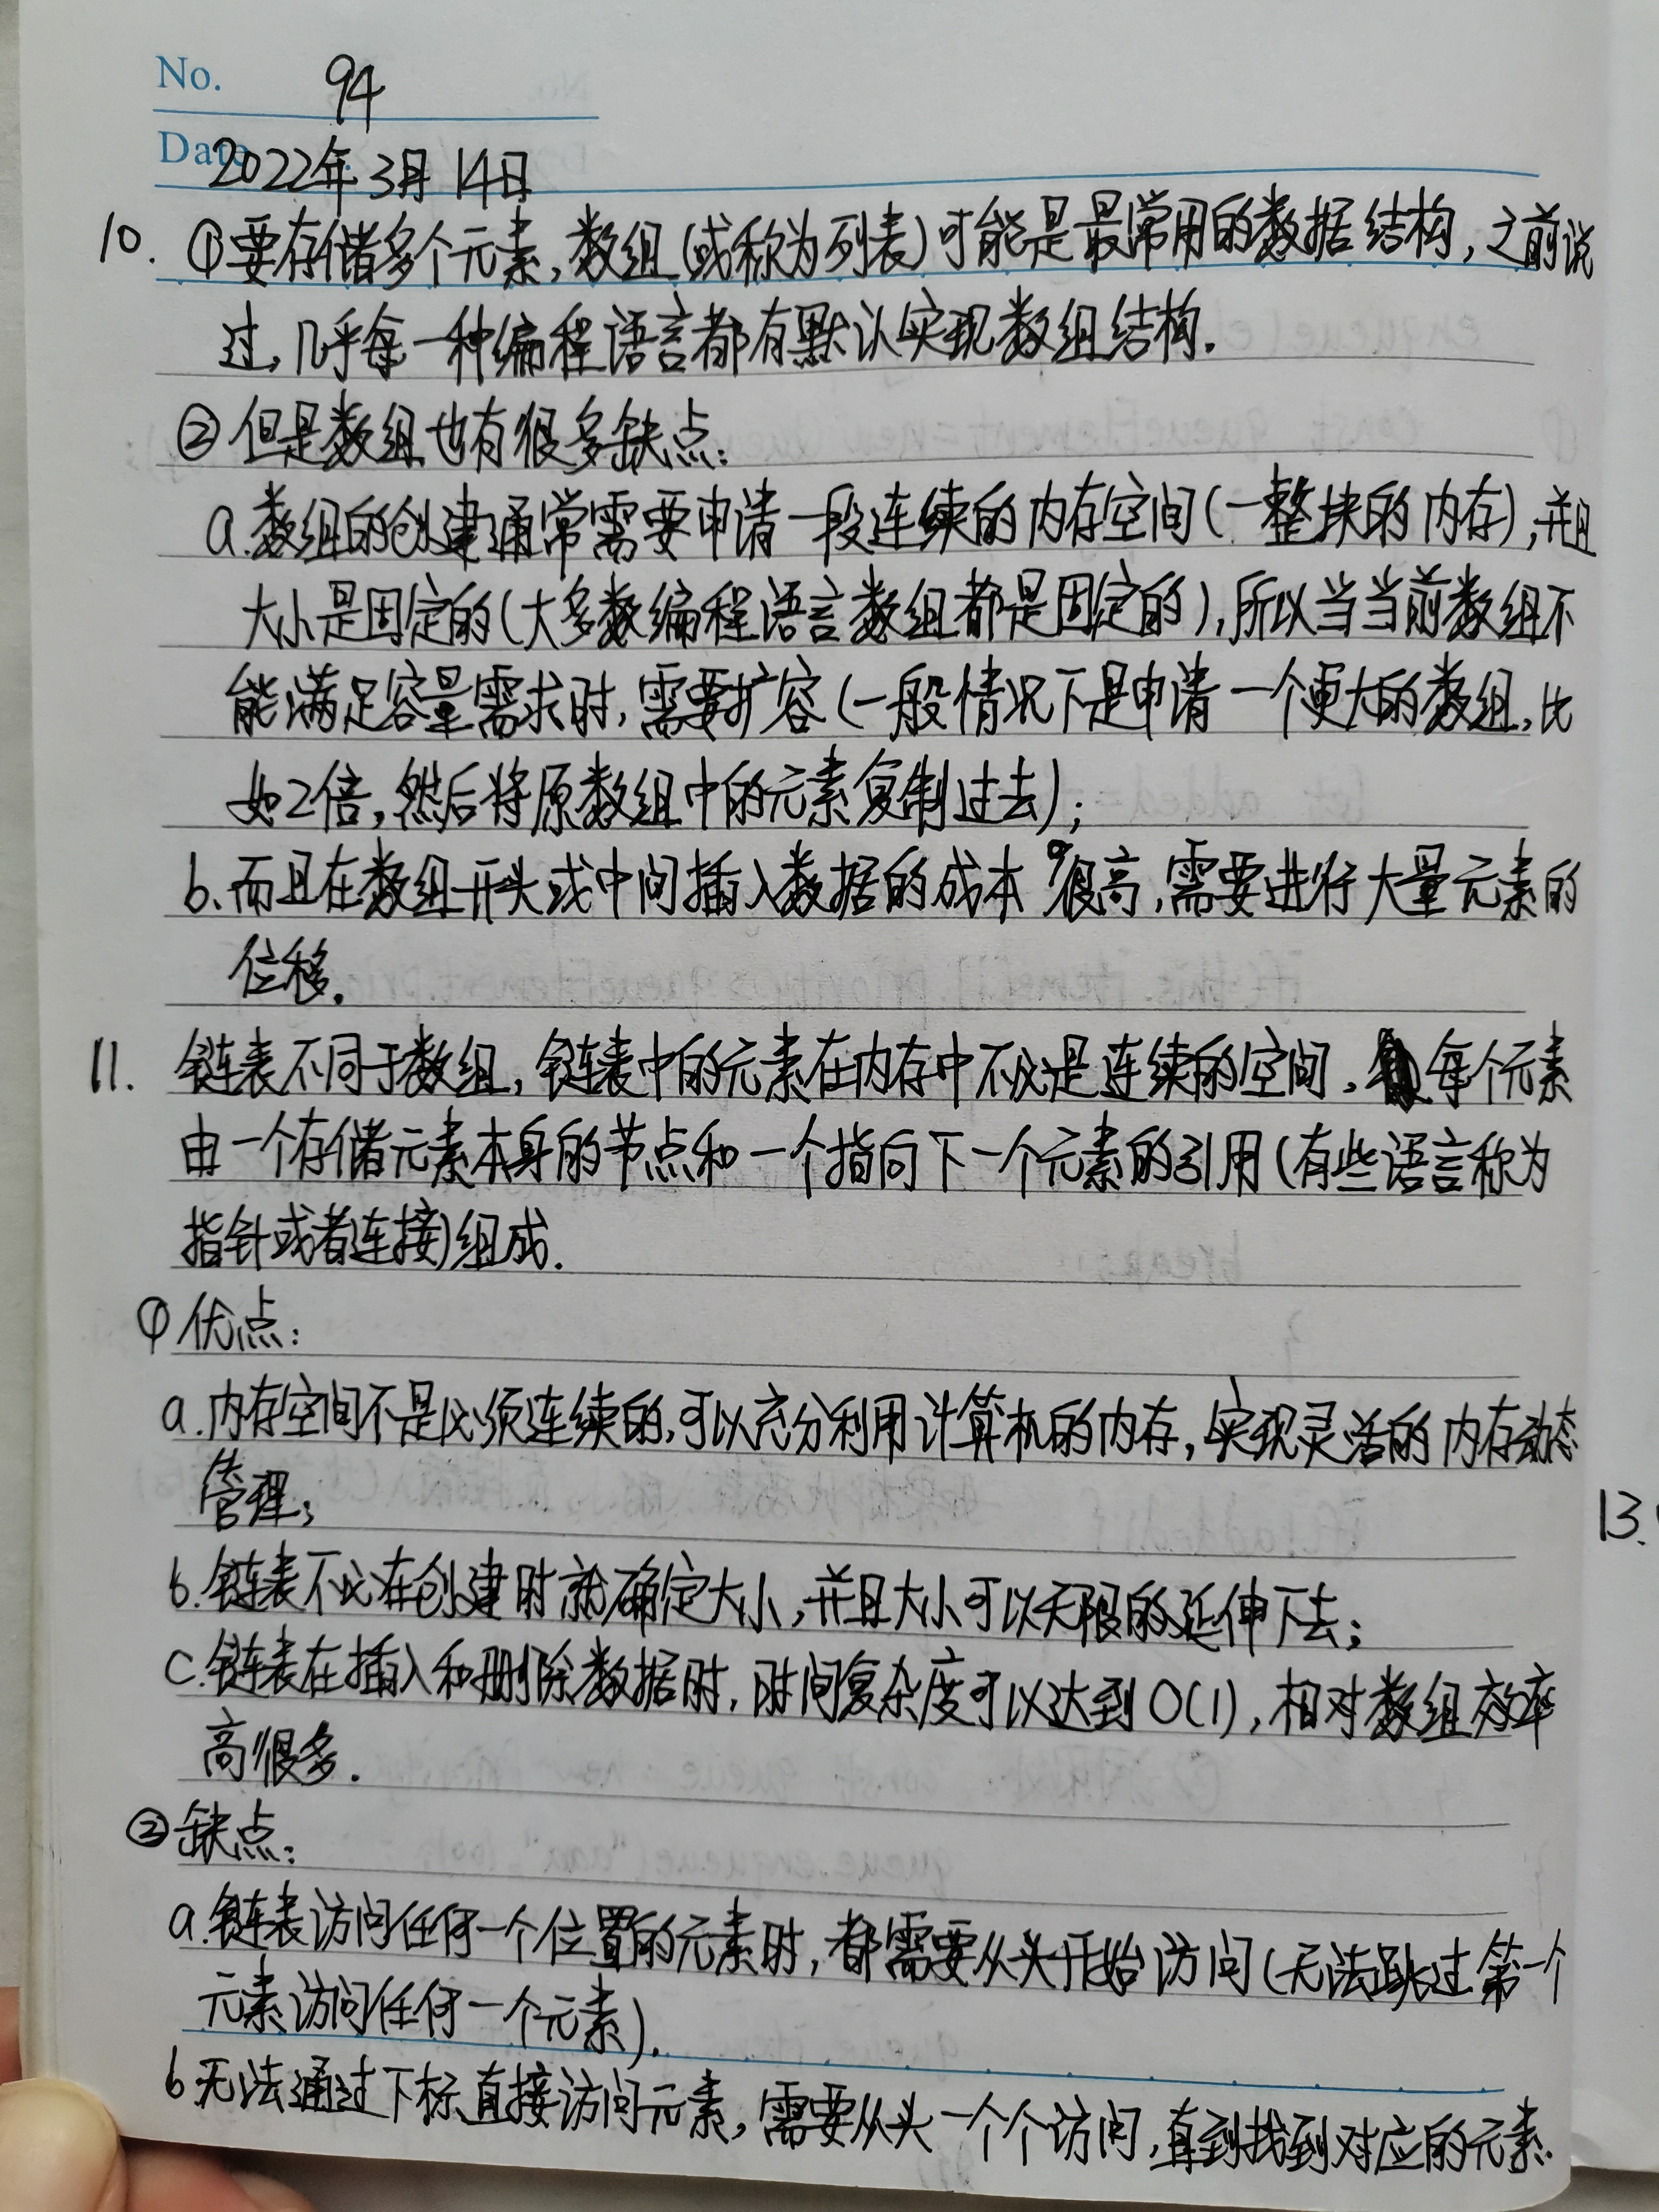 No. 94
Date 2022年3月14日
10. ①要存储多个元素,数组(或称为列表)可能是最常用的数据结构,之前说
过,几乎每一种编程语言都有默认实现数组结构.
②但是数组也有很多缺点:
a.数组的创建通常需要申请一段连续的内存空间(一整块的内存),并且
大小是固定的(大多数编程语言数组都是固定的),所以当当前数组不
能满足容量需求时,需要扩容(一般情况下是申请一个更大的数组,比
如2倍,然后将原数组中的元素复制过去);
b.而且在数组开头或中间插入数据的成本很高,需要进行大量元素的
位移.
11. 链表不同于数组,链表中的元素在内存中不必是连续的空间,每个元素
由一个存储元素本身的节点和一个指向下一个元素的引用(有些语言称为
指针或者连接)组成.
①优点:
a.内存空间不是必须连续的,可以充分利用计算机的内存,实现灵活的内存动态
管理;
b.链表不必在创建时就确定大小,并且大小可以无限的延伸下去;
c.链表在插入和删除数据时,时间复杂度可以达到O(1),相对数组效率
高很多.
②缺点:
a.链表访问任何一个位置的元素时,都需要从头开始访问(无法跳过第一个
元素访问任何一个元素).
b无法通过下标直接访问元素,需要从头一个个访问,直到找到对应的元素.
13.